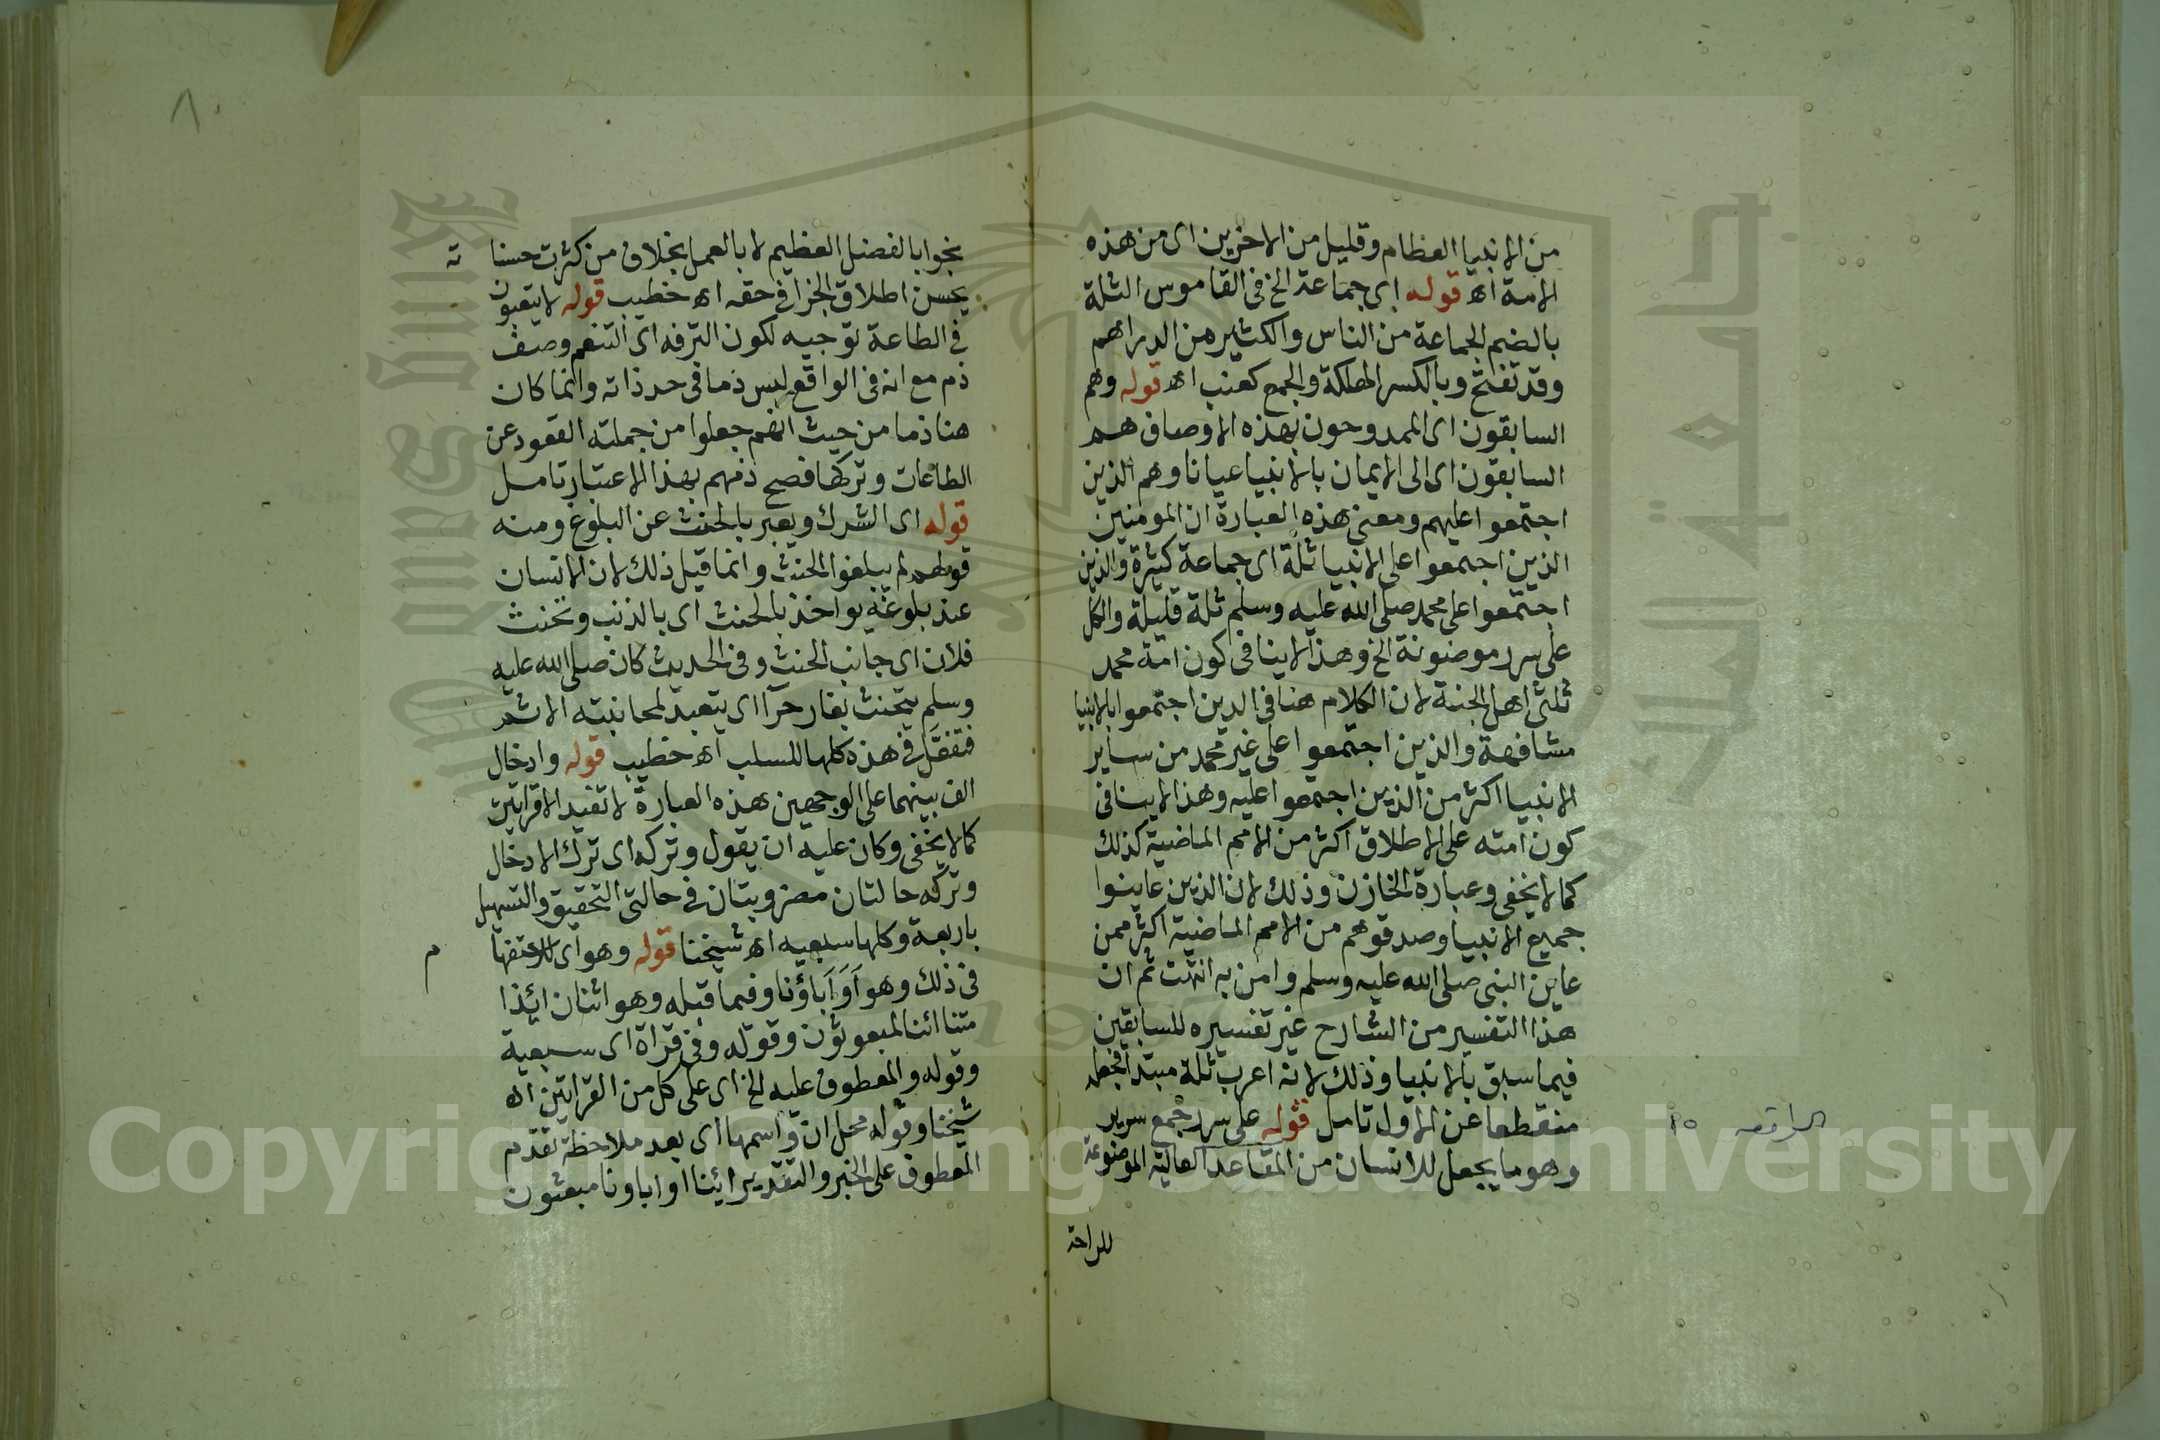 من الانبيا العظام وقليل من الاخرين اى من هذه
الامة اه قوله اى جماعة الخ فى القاموس الثلة
بالضم الجماعة من الناس والكثير من الدراهم
وقد تفتح وبالكسر الهلكة والجمع كعنب اه قوله وهم
السابقون اى الممدوحون بهذه الاوصاف هم
السابقون اى الى الايمان بالانبيا عيانا وهم الذين
اجتمعوا عليهم ومعنى هذه العبارة ان المومنين
الذين اجتمعوا على الانبيا ثلة اى جماعة كثيرة والذين
اجتمعوا على محمد صلى الله عليه وسلم ثلة قليلة والكل
على سرر موضونة الخ وهذا لاينافى كون امة محمد
ثلثى اهل الجنة لان الكلام هنا فى الدين اجتمعوا بالانبيا
مشافهة والذين اجتمعوا على غير محمد من ساير
الانبيا اكثر من الذين اجتمعوا عليه وهذا لاينافى
كون امته على الاطلاق اكثر من الامم الماضية كذلك
كما لا يخفى وعبارة الخازن وذلك لان الذين عاينوا
جميع الانبيا وصدقوهم من الامم الماضية اكثر ممن
عاين النبى صلى الله عليه وسلم وامن به انتهت ثم ان
هذا التفسير من الشارح غير تفسيره للسابقين
فيما سبق بالانبيا وذلك لانه اعرب ثلة مبتدا فجعله
منقطعا عن الاول تامل قوله على سرر جمع سرير
وهو ما يجعل للانسان من المقاعد العالية الموضوعة
للراحة
الواقعه ١٥
٨٠
بجوابا لفضل العظيم لا بالعمل بخلاف من كثرت حسنا ته
يحسن اطلاق الجزا فى حقه اه خطيب قوله لا يتعبون
فى الطاعة توجيه لكون الترفه اى التنعم وصف
ذم مع انه فى الواقع ليس ذما فى حد ذاته وانما كان
هنا ذما من حيث انهم جعلوا من جملته القعود عن
الطاعات وتركها فصح ذمهم بهذا الاعتبار تامل
قوله اى الشرك ويعبر بالحنث عن البلوغ ومنه
قولهم لم يبلغوا الحنث وانما قيل ذلك لان الانسان
عند بلوغه يواخذ بالحنث اى بالذنب وتحنث
فلان اى جانب الحنث وفى الحديث كان صلى الله عليه
وسلم يتحنث بغار حرآ اى يتعبد لمجانبته الاثم
فتفعل فى هذه كلها للسلب اه خطيب قوله وادخال
الف بينهما على الوجهين هذه العبارة لا تفيد الا قراتين
كما لا يخفى وكان عليه ان يقول وتركه اى ترك الادخال
وتركه حالتان مضروبتان فى حالتى التحقيق والتسهيل
باربعة وكلها سبعيه اه شيخنا قوله وهو اى الاستفهام
فى ذلك وهو آوَآباؤنا وفيما قبله وهو اثنان ائذا
متنا ائنا لمبعوثون وقوله وفى قراة اى سبعية
وقوله والمعطوف عليه الخ اى على كل من القراتين اه
شيخنا وقوله محل ان واسمها اى بعد ملاحظة تقدم
المعطوف على الخبر والتقدير ائنا او اباونا مبعثون
Copyright © King Saud University
جامعة الملك سعود
King Saud University
1957